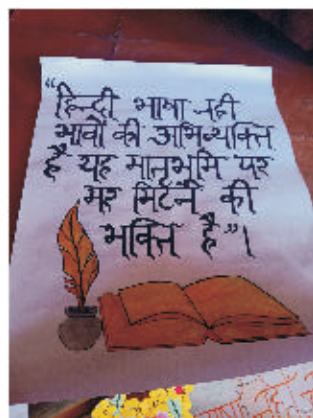 “हिन्दी भाषा नही
भावों की अभिव्यक्ति
है यह मातृभूमि पर
मर मिटने की
भक्ति है”।